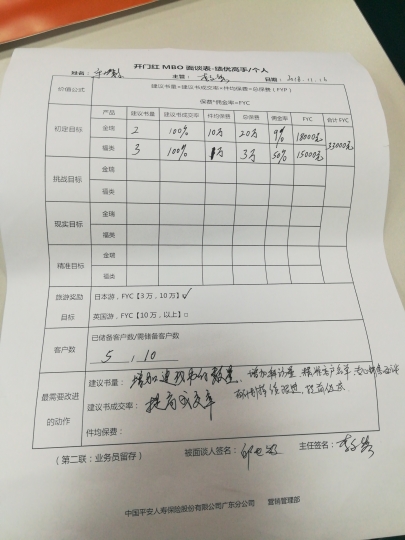 开门红 MBO 面谈表-绩优高手/个人
姓名： 主管： 日期： 2018.11.16
价值公式 建议书量*建议书成交率*件均保费=总保费（FYP）
保费*佣金率=FYC
产品 建议书量 建议书成交率 件均保费 总保费 佣金率 FYC 合计 FYC
初定目标 金瑞 2 100% 10万 20万 9% 18000元 33000元
福类 3 100% 1万 3万 50% 15000元
挑战目标 金瑞
福类
现实目标 金瑞
福类
精准目标 金瑞
福类
旅游奖励 日本游，FYC【3 万，10 万】√
目标 英国游，FYC【10 万，以上】□
客户数 已储备客户数/需储备客户数
5 , 10
最需要改进的动作 建议书量： 增加建议书的数量，增加拜访量，
建议书成交率： 提高成交率
件均保费：
（第二联：业务员留存） 被面谈人签名： 主任签名：
中国平安人寿保险股份有限公司广东分公司 营销管理部